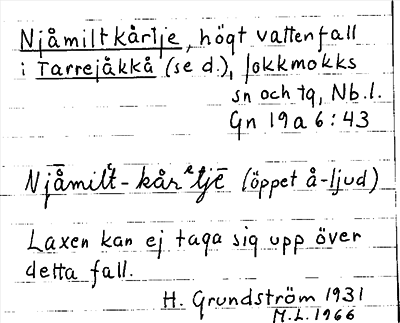 Njåmiltkårtje, högt vattenfall
i Tarrejåkkå (se d.), Jokkmokks
sn och tg, Nb.l.
Gn 19a 6:43
Njåmilt-kårᵉtjē (öppet å-ljud)
Laxen kan ej taga sig upp över
detta fall.
H. Grundström 1931
M.L. 1966